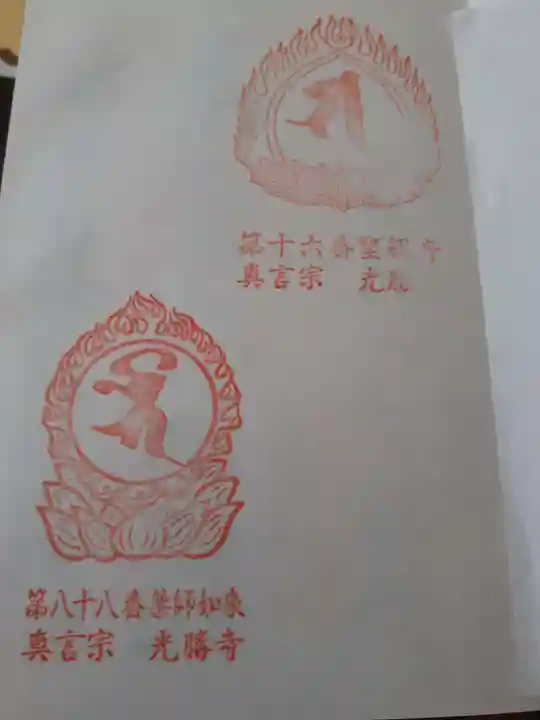 第十六番聖観寺
真言宗 光
第八十八番薬師如来
真言宗 光勝寺